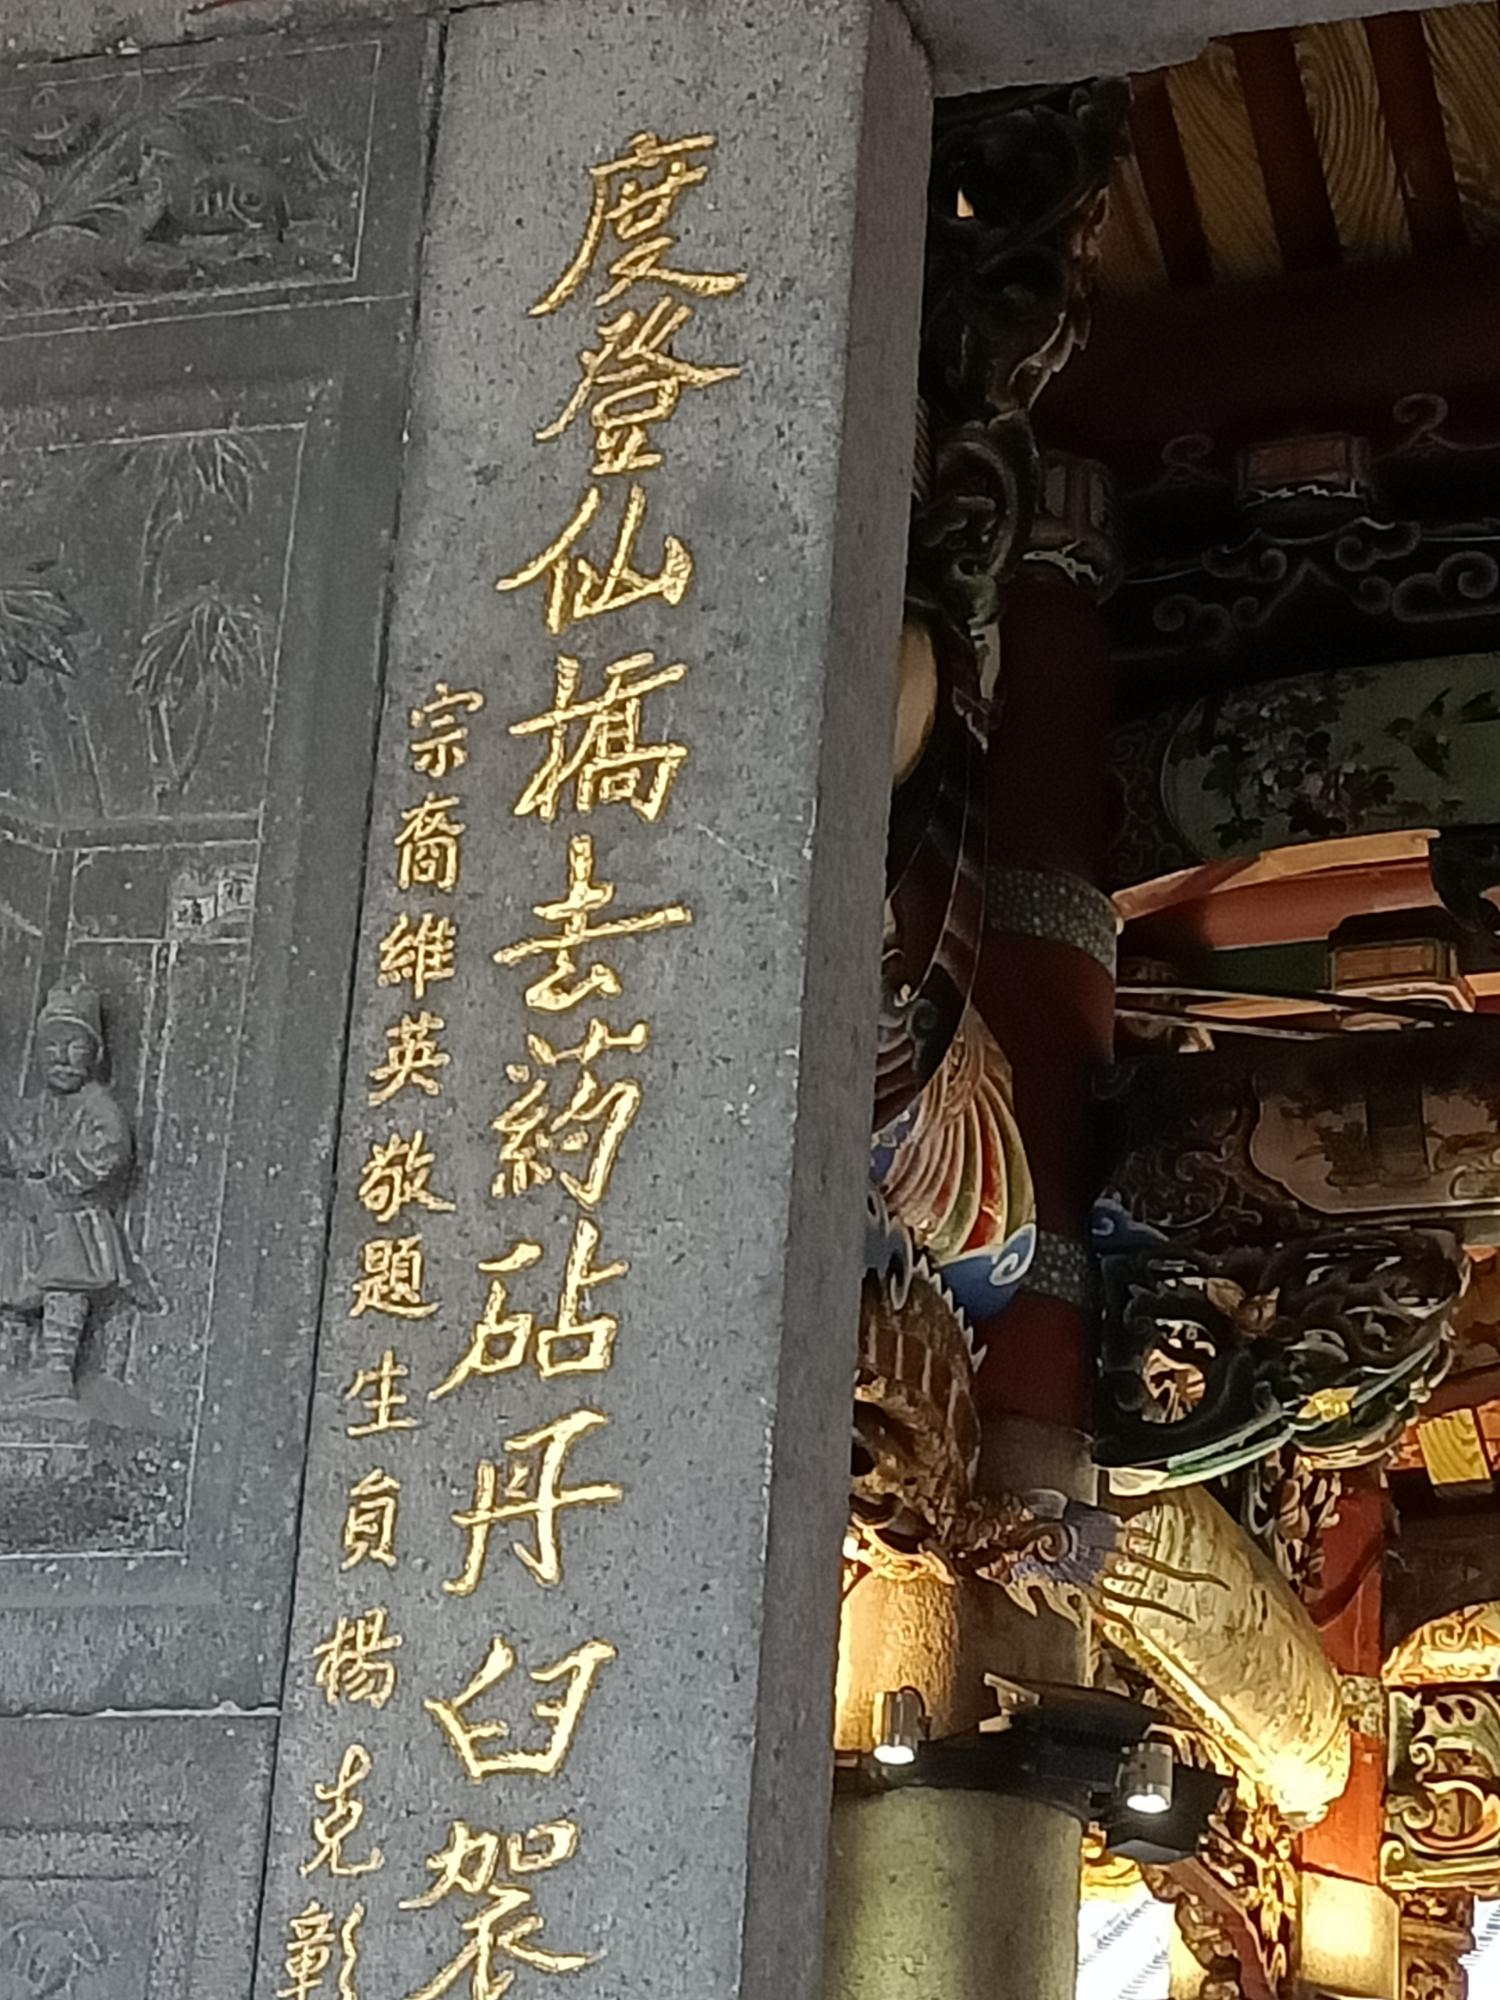 度登仙橋去葯砧丹臼袈
宗裔維英敬題生員楊克彰